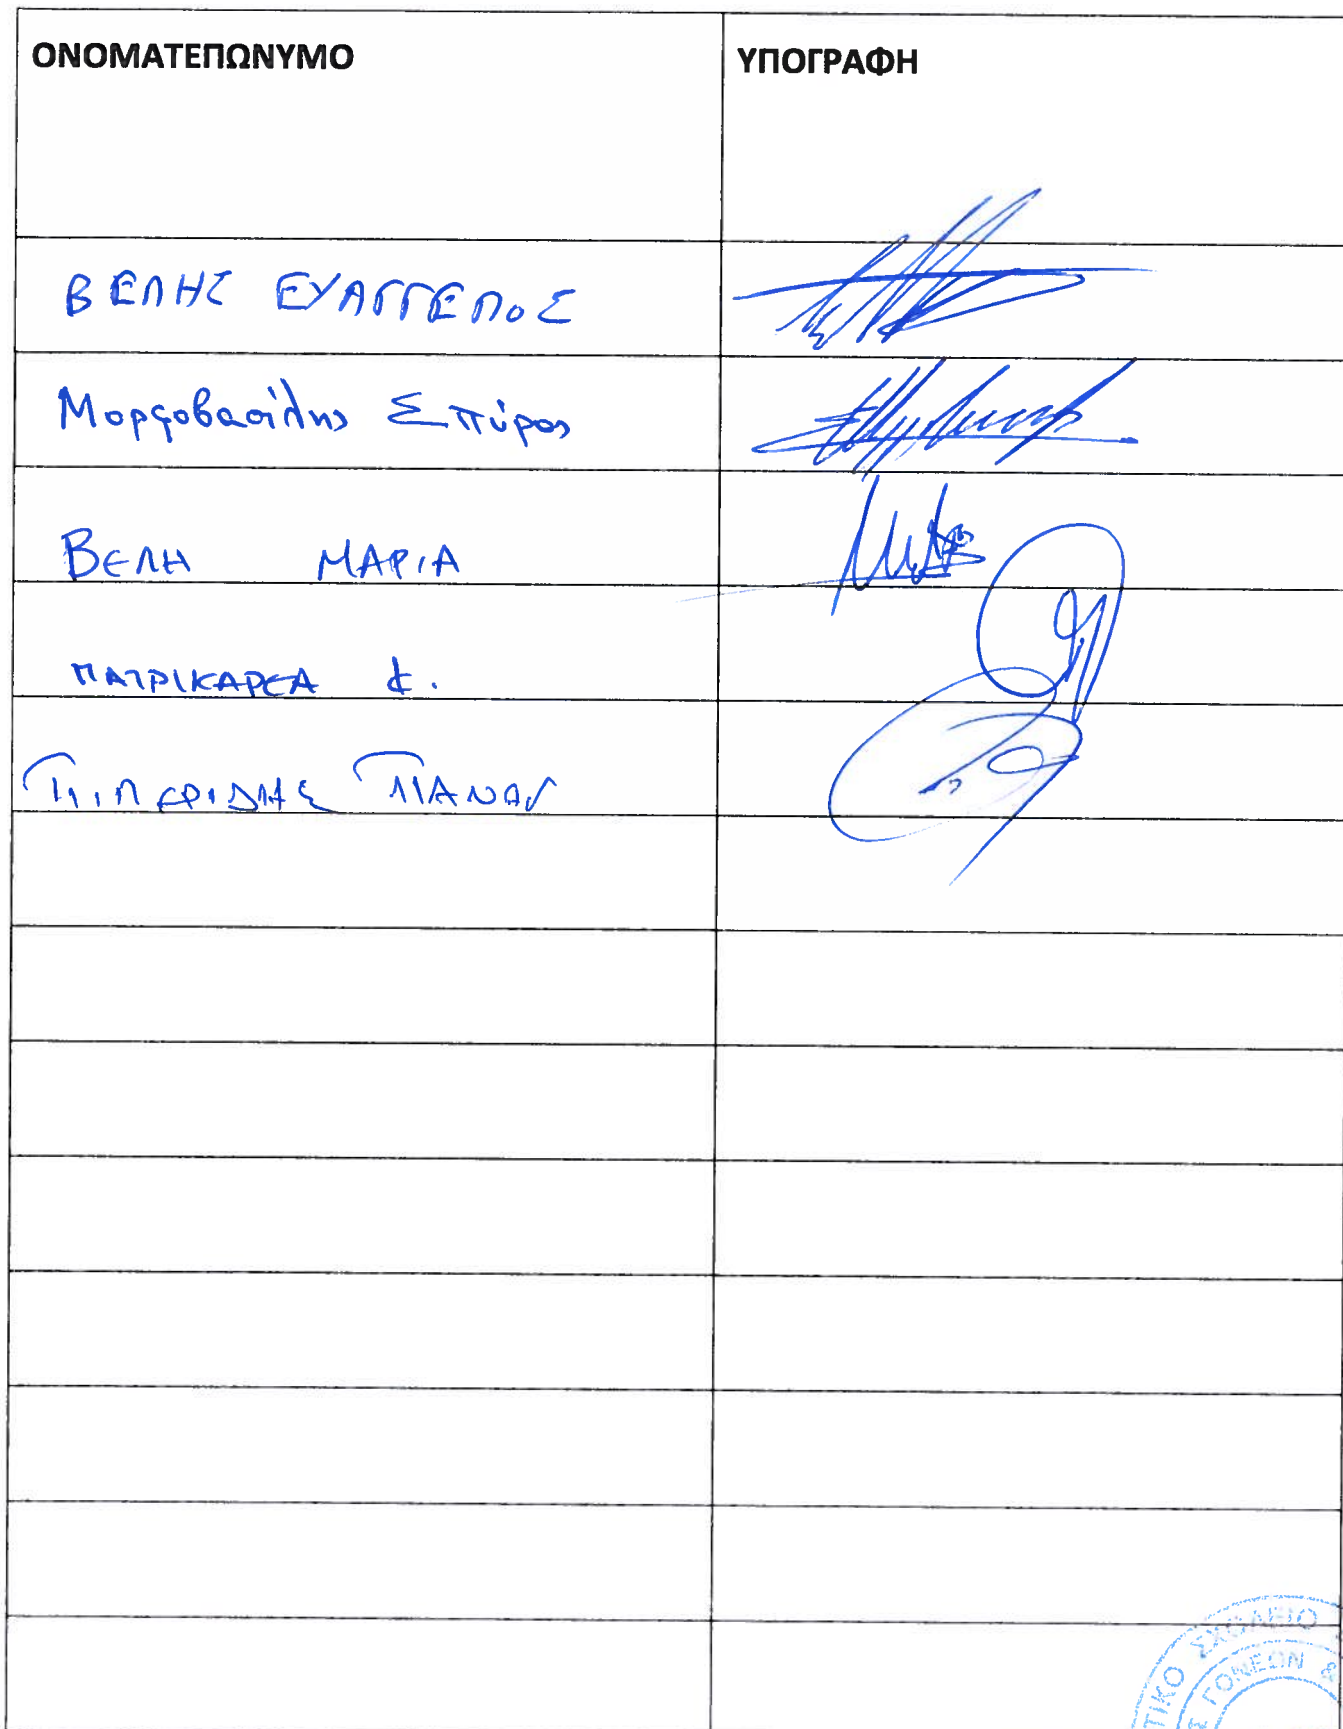 ΟΝΟΜΑΤΕΠΩΝΥΜΟ ΥΠΟΓΡΑΦΗ
ΒΕΛΗΣ ΕΥΑΓΓΕΛΟΣ
Σπύρος
ΒΕΛΗ ΜΑΡΙΑ
ΠΑΤΡΙΚΑΡΕΑ
ΠΙΠΕΡΙΔΗΣ
ΤΙΚΟ ΣΧΟΛΕΙΟ
Σ ΓΟΝΕΩΝ &